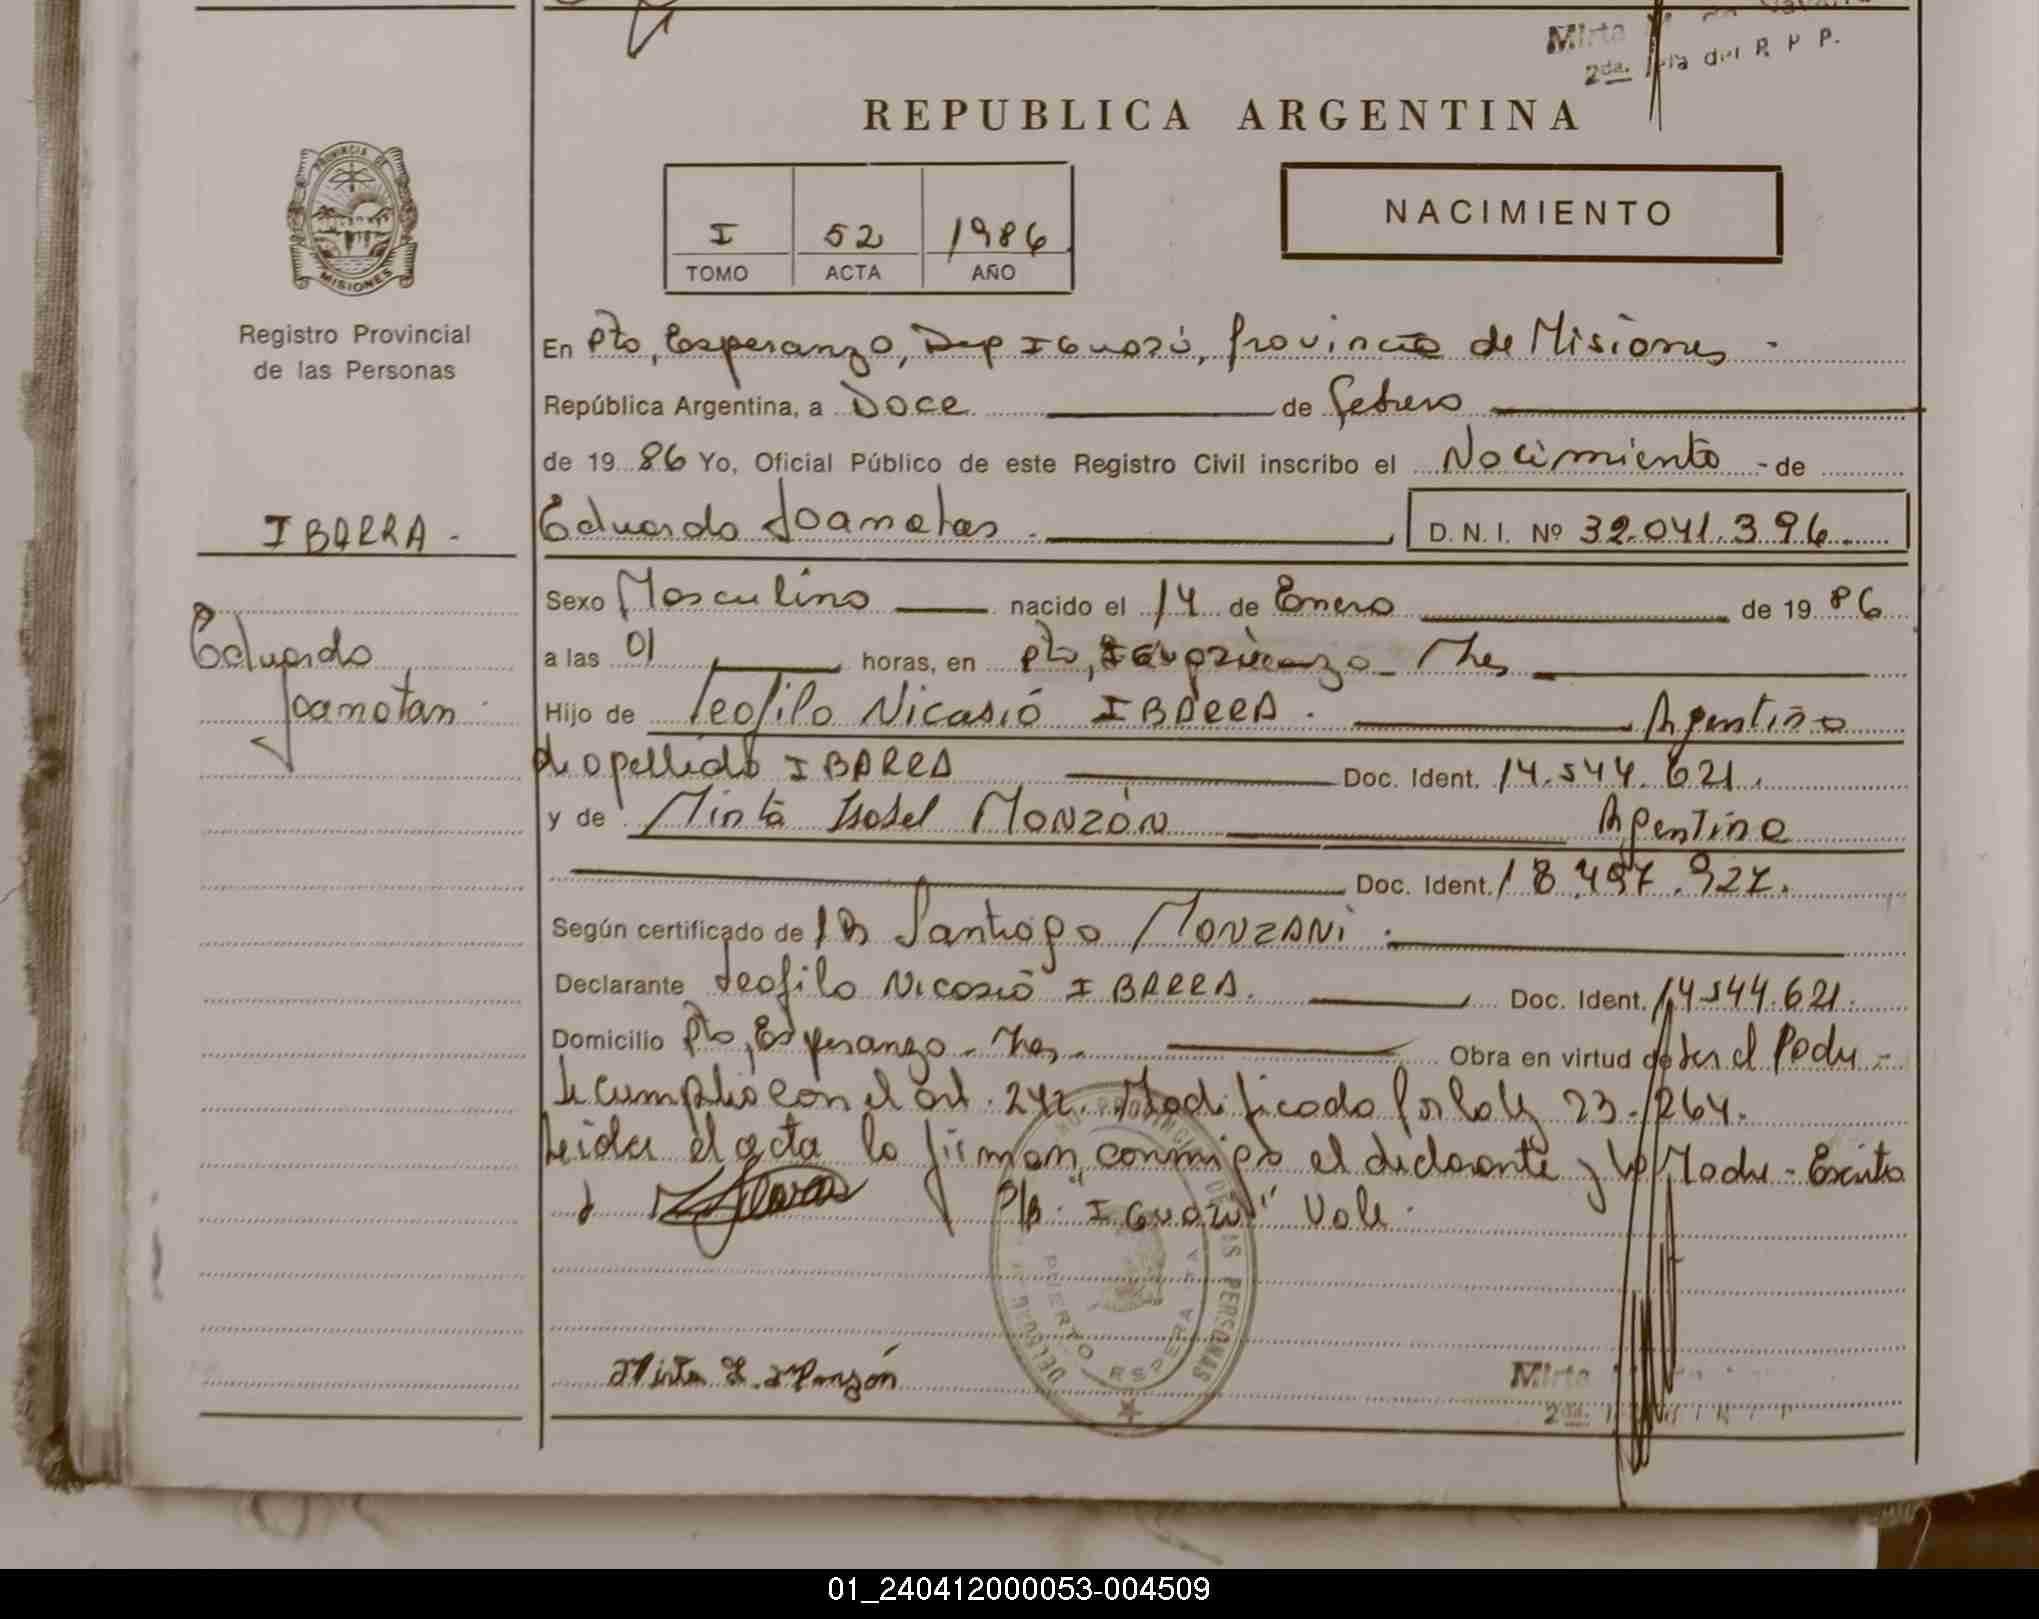 Mirta
2da. del R P P.
REPUBLICA ARGENTINA
PROVINCIA DE
MISIONES
Registro Provincial
de las Personas
I 52 1986
TOMO ACTA AÑO
NACIMIENTO
En Pto, Esperanza, Dep Iguazú, Provincia de Misiones -
República Argentina, a Doce de febrero
de 1986 Yo, Oficial Público de este Registro Civil inscribo el Nacimiento - de
IBARRA -
Eduardo Joanatan D.N.I. Nº 32.041.396
Sexo Masculino nacido el 14 de Enero de 1986
Eduardo
Joanatan
a las 01 horas, en Pto, Mnes
Hijo de Teofilo Nicasió IBARRA. Argentino
de apellido IBARRA Doc. Ident. 14.544.621.
y de Mirta Isabel MONZÓN Argentina
Doc. Ident. 18.497.927.
Según certificado de Santiago MONZANI.
Declarante Teofilo Nicasió IBARRA. Doc. Ident. 14544.621.
Domicilio Pto, Esperanza - Mnes - Obra en virtud de ser el Padre -
Se cumplió con el art. 242. Modificado por la ley 23.264.
Leida el acta la firman conmigo el declarante y la Madre - Escrito
P/A "IGUAZU" Vale.
PROVINCIAL DE LAS PERSONAS
PUERTO ESPERANZA
Mirta I. Monzón
Mirta
2da.
01_240412000053-004509